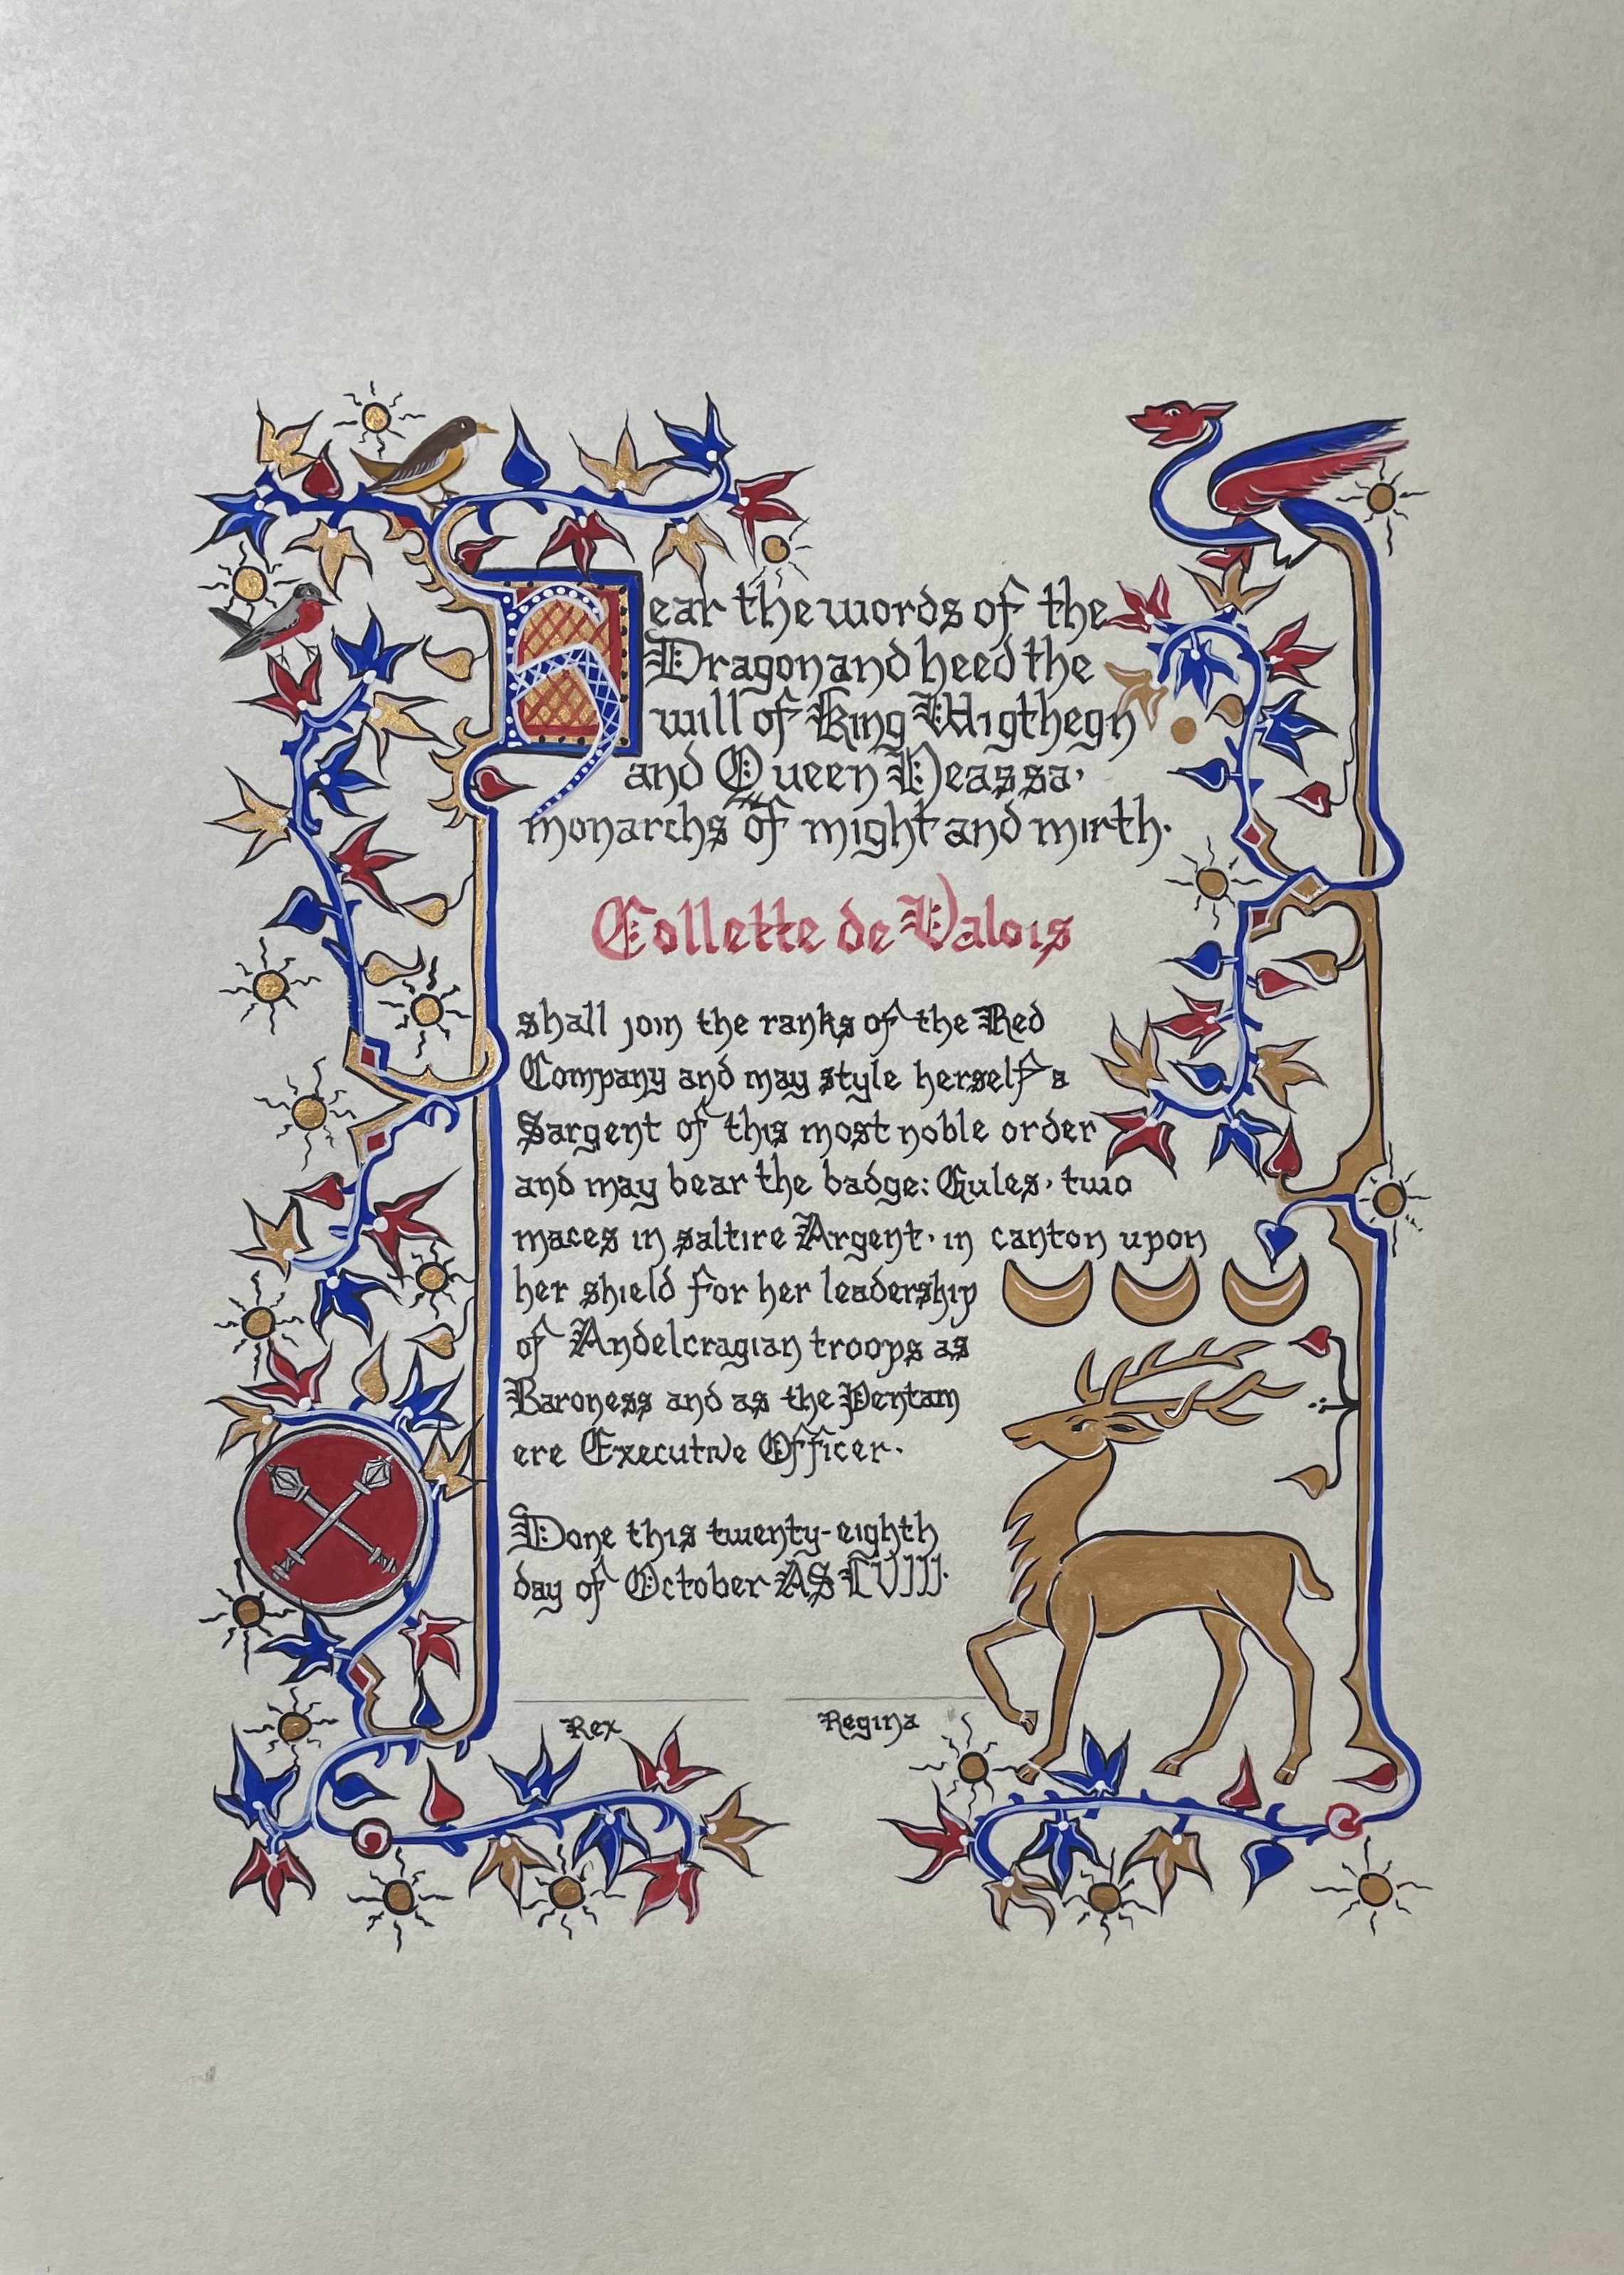 Hear the words of the
Dragon and heed the
will of King Wigthegn
and Queen Neassa,
monarchs of might and mirth.
Collette de Valois
shall join the ranks of the Red
Company and may style herself a
Sargent of this most noble order
and may bear the badge: Gules, two
maces in saltire Argent, in canton upon
her shield for her leadership
of Andelcragian troops as
Baroness and as the Pentam
ere Executive Officer.
Done this twenty-eighth
day of October AS LVIII.
Rex Regina